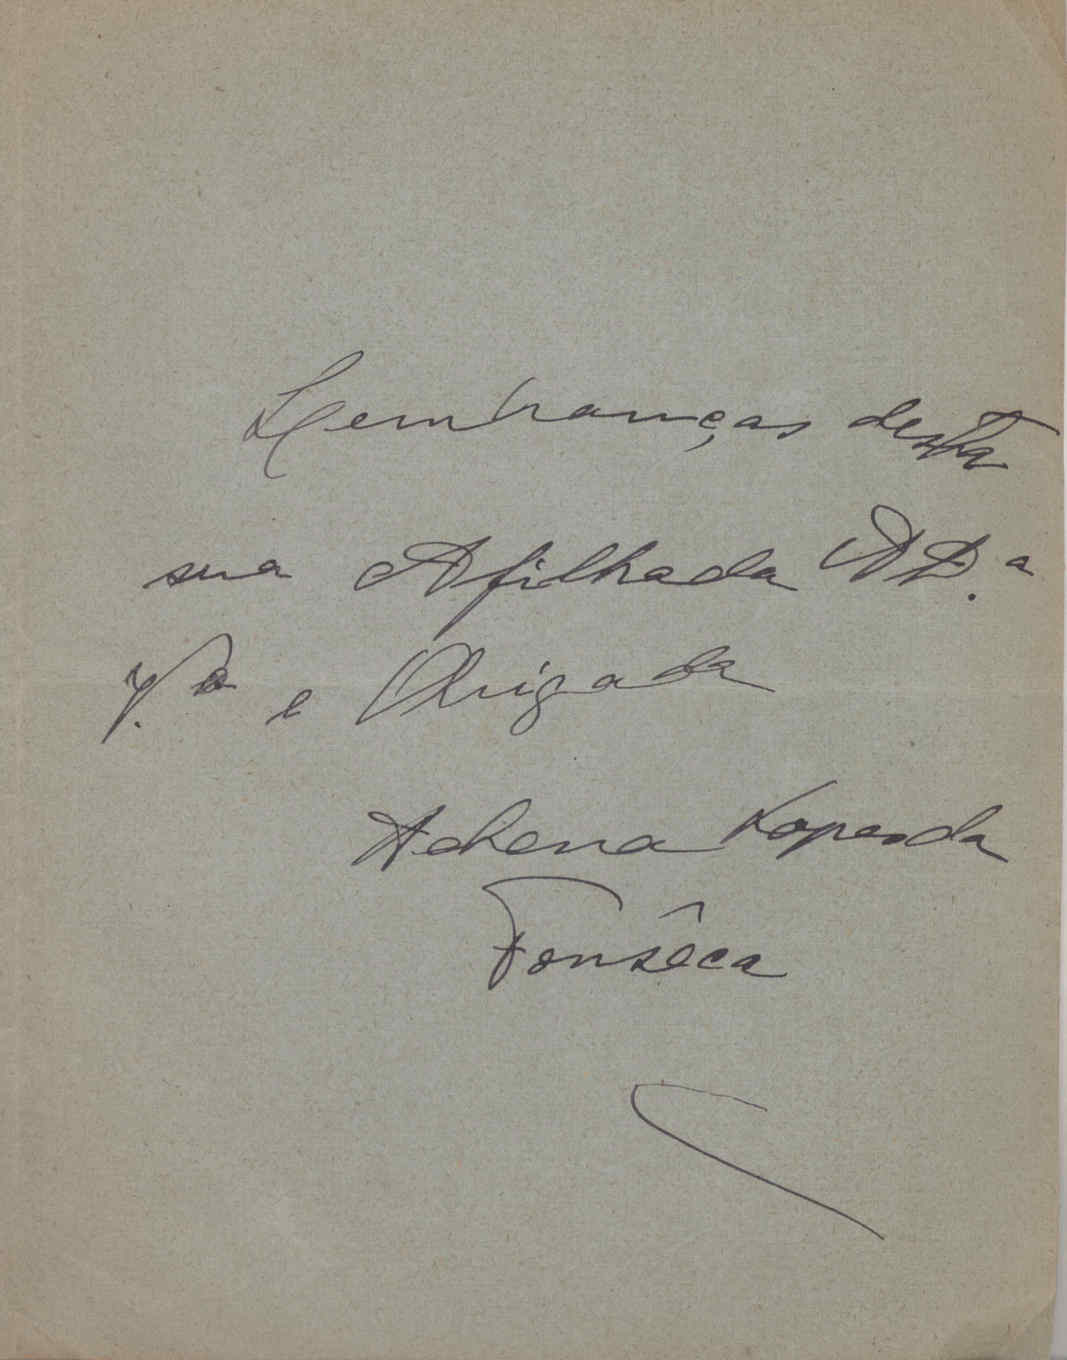 Lembranças desta
sua Afilhada AD.a
V.a e Obrigada
Adhena Lopes da
Fonsêca